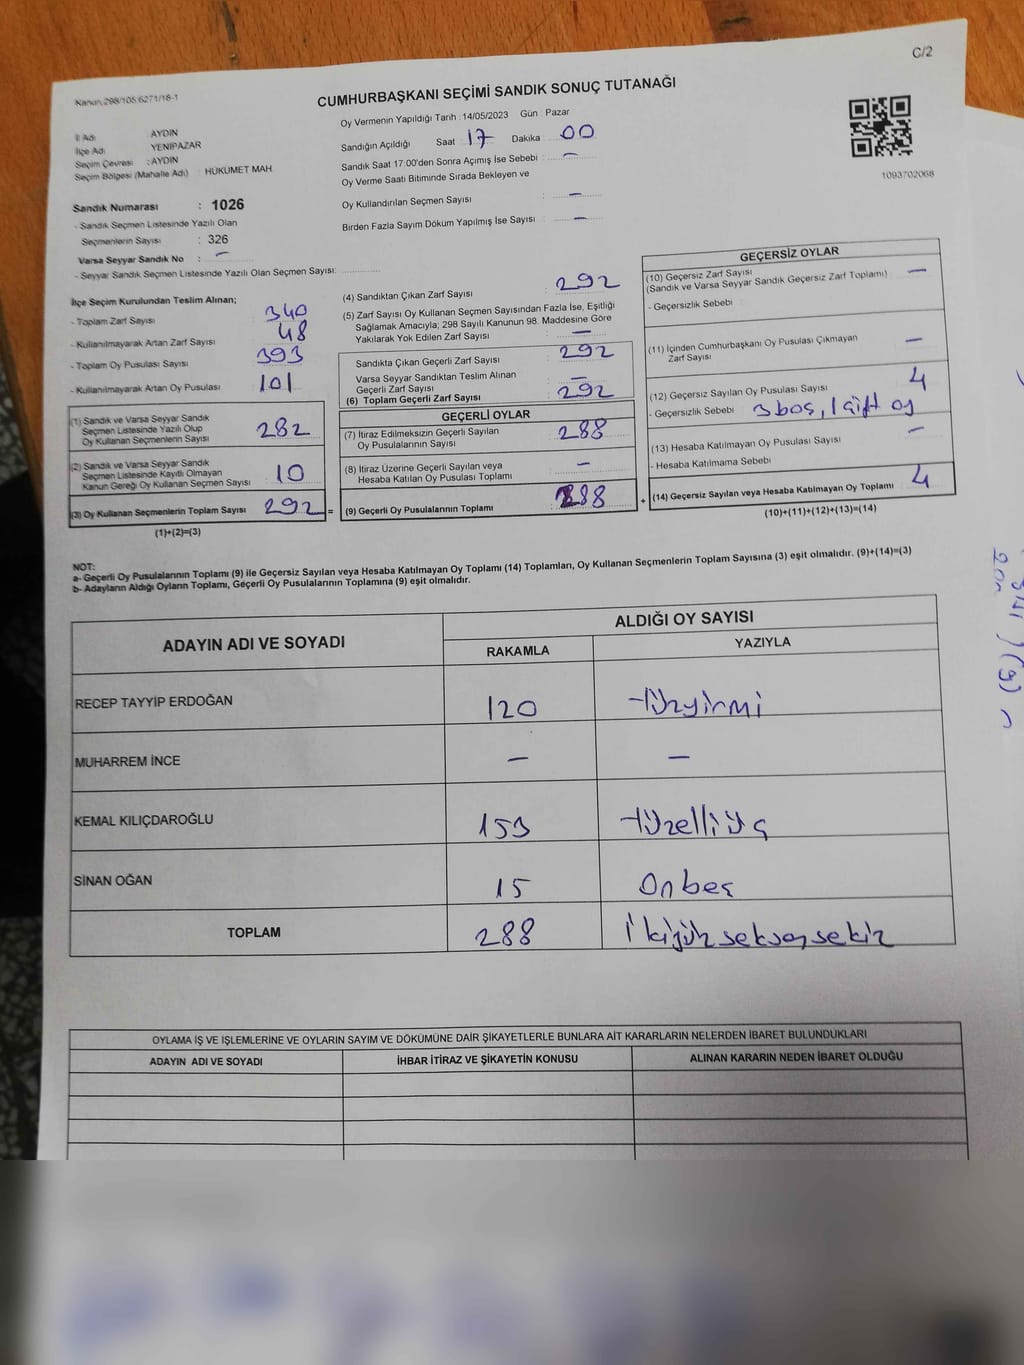 C/2
Kanun,298/105;6271/18-1
CUMHURBAŞKANI SEÇİMİ SANDIK SONUÇ TUTANAĞI
İl Adı : AYDIN
İlçe Adı : YENİPAZAR
Seçim Çevresi : AYDIN
Seçim Bölgesi (Mahalle Adı) : HÜKÜMET MAH.
Oy Vermenin Yapıldığı Tarih : 14/05/2023 Gün : Pazar
Sandığın Açıldığı Saat 17 Dakika 00
Sandık Saat 17:00'den Sonra Açılmış İse Sebebi : —
Oy Verme Saati Bitiminde Sırada Bekleyen ve
Oy Kullandırılan Seçmen Sayısı : —
Birden Fazla Sayım Döküm Yapılmış İse Sayısı : —
1093702068
Sandık Numarası : 1026
- Sandık Seçmen Listesinde Yazılı Olan
Seçmenlerin Sayısı : 326
Varsa Seyyar Sandık No : —
- Seyyar Sandık Seçmen Listesinde Yazılı Olan Seçmen Sayısı:
İlçe Seçim Kurulundan Teslim Alınan;
- Toplam Zarf Sayısı 340
- Kullanılmayarak Artan Zarf Sayısı 48
- Toplam Oy Pusulası Sayısı 393
- Kullanılmayarak Artan Oy Pusulası 101
(1) Sandık ve Varsa Seyyar Sandık
Seçmen Listesinde Yazılı Olup
Oy Kullanan Seçmenlerin Sayısı 282
(2) Sandık ve Varsa Seyyar Sandık
Seçmen Listesinde Kayıtlı Olmayan
Kanun Gereği Oy Kullanan Seçmen Sayısı 10
(3) Oy Kullanan Seçmenlerin Toplam Sayısı 292 =
(1)+(2)=(3)
(4) Sandıktan Çıkan Zarf Sayısı 292
(5) Zarf Sayısı Oy Kullanan Seçmen Sayısından Fazla İse, Eşitliği
Sağlamak Amacıyla; 298 Sayılı Kanunun 98. Maddesine Göre
Yakılarak Yok Edilen Zarf Sayısı : —
Sandıkta Çıkan Geçerli Zarf Sayısı 292
Varsa Seyyar Sandıktan Teslim Alınan
Geçerli Zarf Sayısı —
(6) Toplam Geçerli Zarf Sayısı 292
GEÇERLİ OYLAR
(7) İtiraz Edilmeksizin Geçerli Sayılan
Oy Pusulalarının Sayısı 288
(8) İtiraz Üzerine Geçerli Sayılan veya
Hesaba Katılan Oy Pusulası Toplamı —
(9) Geçerli Oy Pusulalarının Toplamı : 288 +
GEÇERSİZ OYLAR
(10) Geçersiz Zarf Sayısı
(Sandık ve Varsa Seyyar Sandık Geçersiz Zarf Toplamı) —
- Geçersizlik Sebebi :
(11) İçinden Cumhurbaşkanı Oy Pusulası Çıkmayan
Zarf Sayısı —
(12) Geçersiz Sayılan Oy Pusulası Sayısı 4
- Geçersizlik Sebebi 3 boş, 1 çift oy
(13) Hesaba Katılmayan Oy Pusulası Sayısı —
- Hesaba Katılmama Sebebi :
(14) Geçersiz Sayılan veya Hesaba Katılmayan Oy Toplamı 4
(10)+(11)+(12)+(13)=(14)
NOT:
a- Geçerli Oy Pusulalarının Toplamı (9) ile Geçersiz Sayılan veya Hesaba Katılmayan Oy Toplamı (14) Toplamları, Oy Kullanan Seçmenlerin Toplam Sayısına (3) eşit olmalıdır. (9)+(14)=(3)
b- Adayların Aldığı Oyların Toplamı, Geçerli Oy Pusulalarının Toplamına (9) eşit olmalıdır.
ADAYIN ADI VE SOYADI ALDIĞI OY SAYISI
RAKAMLA YAZIYLA
RECEP TAYYİP ERDOĞAN 120 Yüzyirmi
MUHARREM İNCE — —
KEMAL KILIÇDAROĞLU 153 Yüzelliüç
SİNAN OĞAN 15 Onbeş
TOPLAM 288 İkiyüzseksensekiz
OYLAMA İŞ VE İŞLEMLERİNE VE OYLARIN SAYIM VE DÖKÜMÜNE DAİR ŞİKAYETLERLE BUNLARA AİT KARARLARIN NELERDEN İBARET BULUNDUKLARI
ADAYIN ADI VE SOYADI İHBAR İTİRAZ VE ŞİKAYETİN KONUSU ALINAN KARARIN NEDEN İBARET OLDUĞU